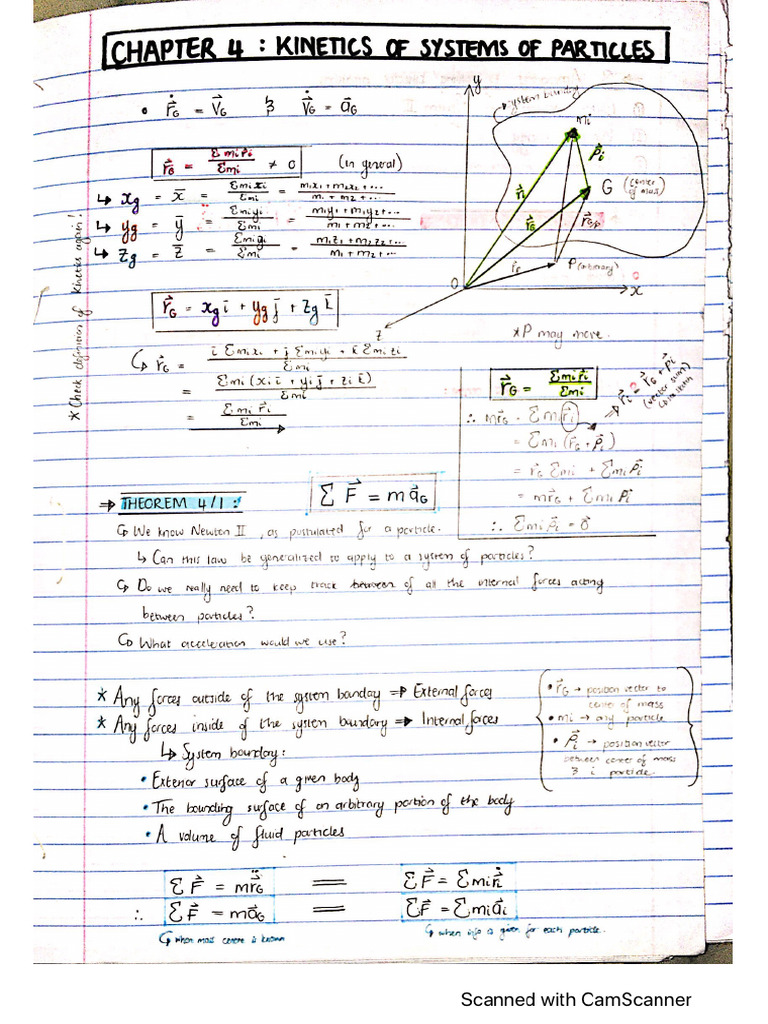 CHAPTER 4 : KINETICS OF SYSTEMS OF PARTICLES
• ṙ⃗G = v⃗G & v⃗̇G = a⃗G
r⃗G = Σmir⃗i / Σmi ≠ 0 (in general)
↳ xg = x̄ = Σmixi / Σmi = m1x1 + m2x2 + ... / m1 + m2 + ...
↳ yg = ȳ = Σmiyi / Σmi = m1y1 + m2y2 + ... / m1 + m2 + ...
↳ zg = z̄ = Σmizi / Σmi = m1z1 + m2z2 + ... / m1 + m2 + ...
* Check definition of kinetics again!
r⃗G = xg i + yg j + zg k
↳ r⃗G = i Σmixi + j Σmiyi + k Σmizi / Σmi
= Σmi (xi i + yi j + zi k) / Σmi
= Σmi r⃗i / Σmi
y
system boundary
mi
ρ⃗i
r⃗i
G (center of mass)
r⃗G
r⃗G/P
P (arbitrary)
O
x
z
*P may move.
r⃗G = Σmir⃗i / Σmi
∴ mr⃗G = Σmi r⃗i
⇒ r⃗i = r⃗G + ρ⃗i
(vector sum)
= Σmi (r⃗G + ρ⃗i)
= r⃗G Σmi + Σmiρ⃗i
= mr⃗G + Σmi ρ⃗i
∴ Σmi ρ⃗i = 0⃗
⇒ THEOREM 4/1 :
Σ F⃗ = m a⃗G
↳ We know Newton II , as postulated for a particle.
↳ Can this law be generalized to apply to a system of particles?
↳ Do we really need to keep track between of all the internal forces acting
between particles?
↳ What acceleration would we use?
* Any forces outside of the system bounday ⇒ External forces
* Any forces inside of the system boundary ⇒ Internal forces
↳ System boundary:
• Exterior surface of a given body
• The bounding surface of an arbitrary portion of the body
• A volume of fluid particles
• r⃗G → position vector to
center of mass
• mi → any particle
• ρ⃗i → position vector
between center of mass
& i particle.
ΣF⃗ = mr̈⃗G = ΣF⃗ = Σmir̈⃗i
∴ ΣF⃗ = ma⃗G = ΣF⃗ = Σmia⃗i
↳ when mass centre is known
↳ when info is given for each particle.
Scanned with CamScanner